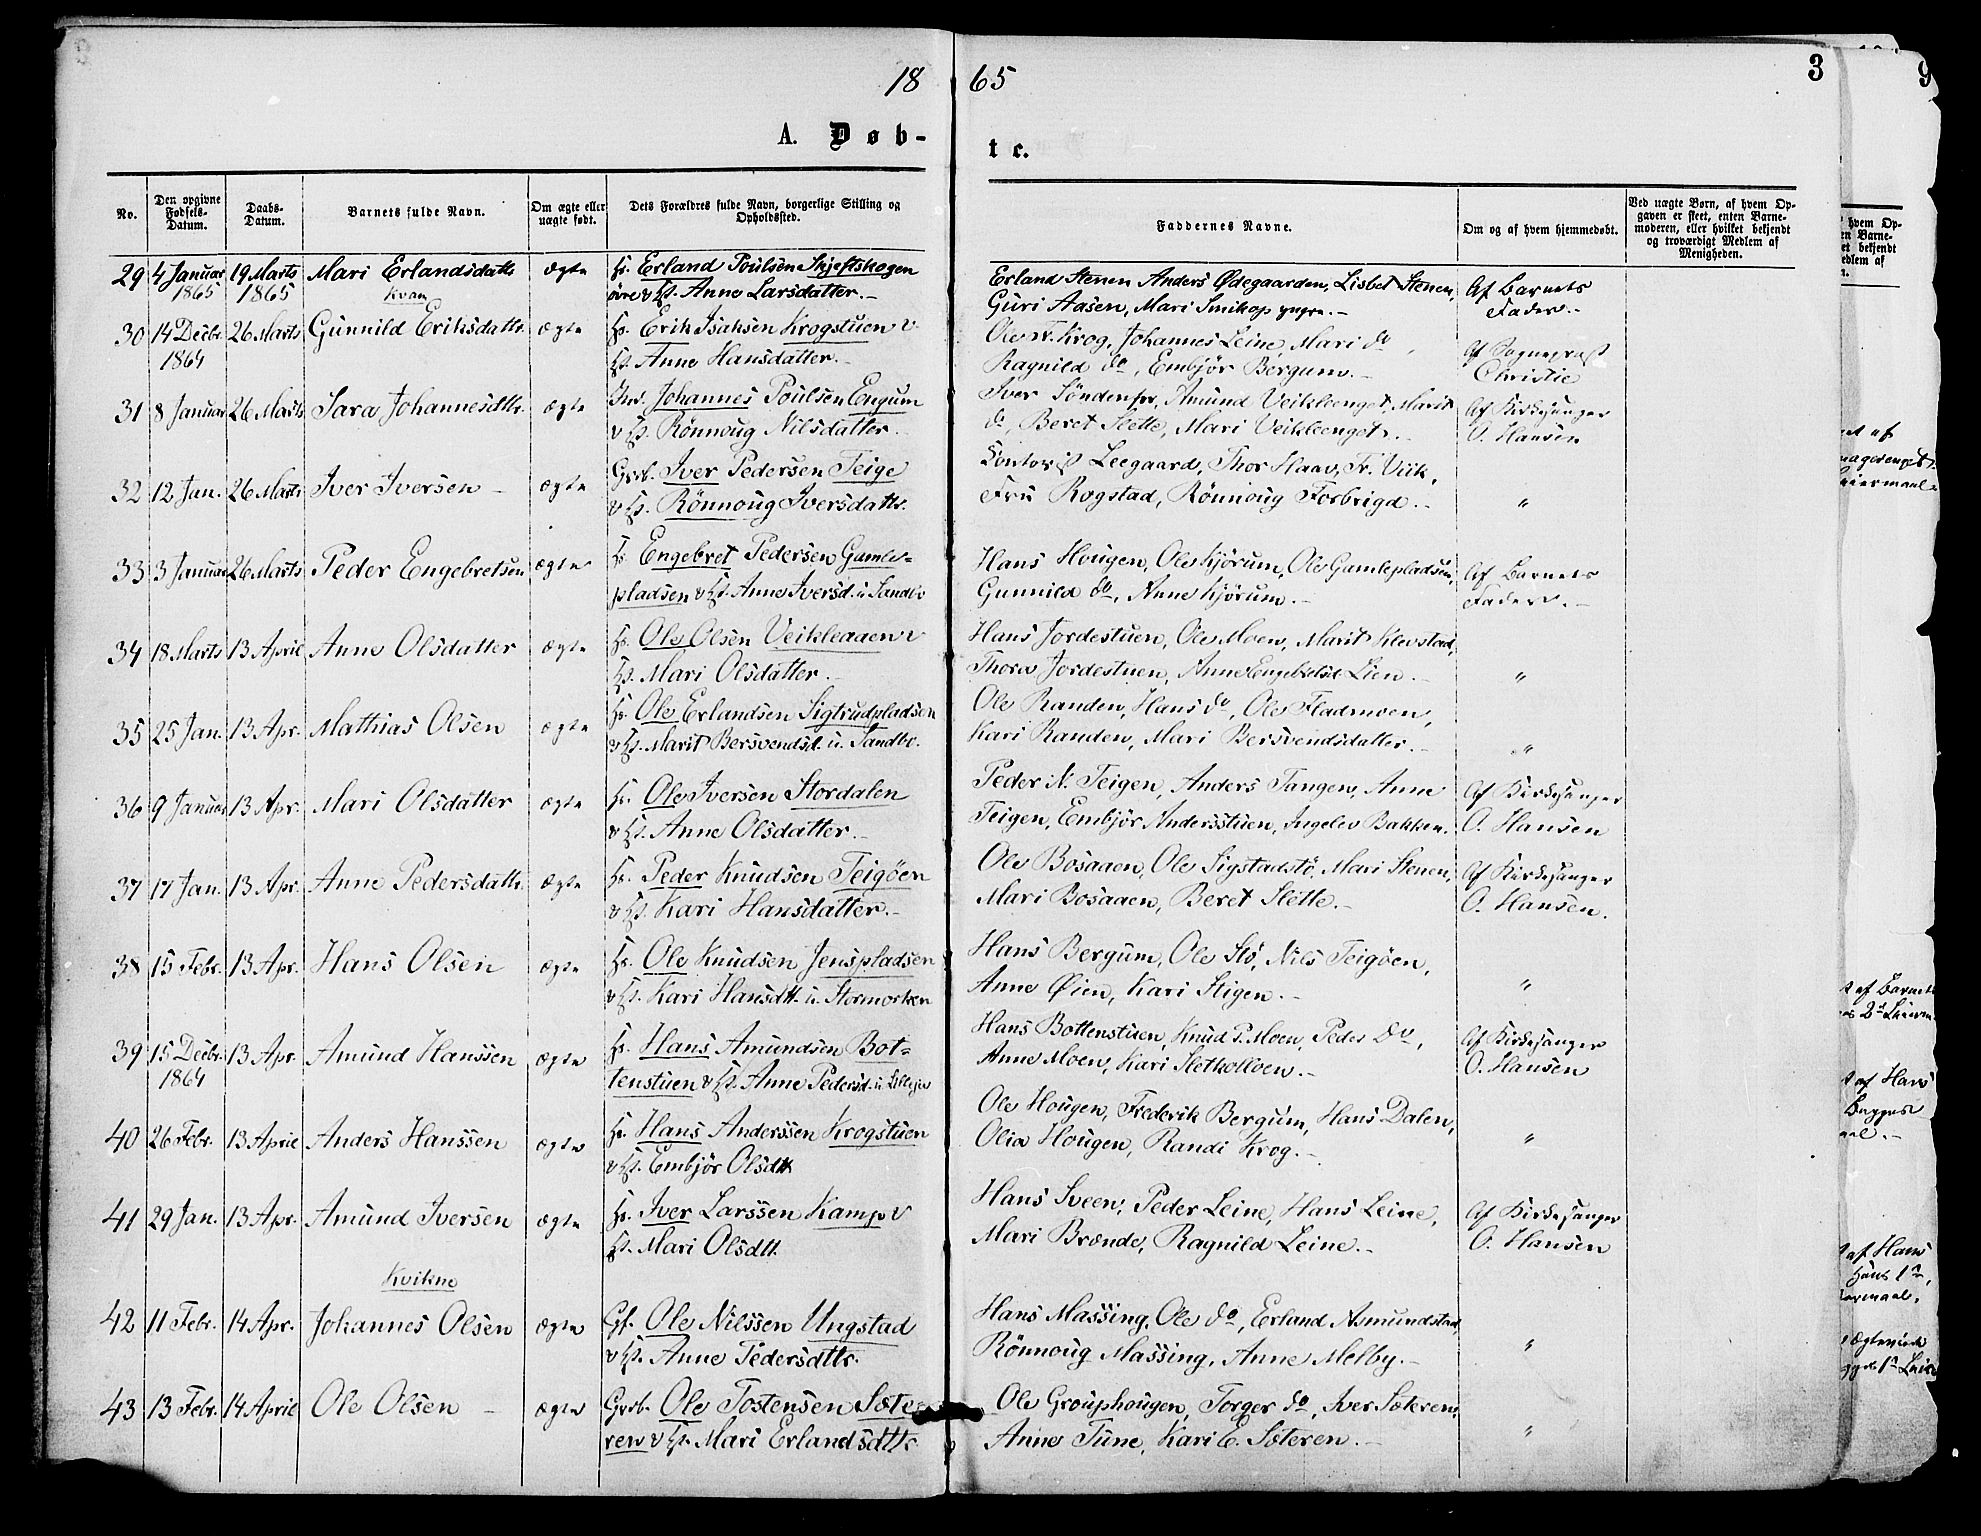 18 65
3
9
A. Døb- te.
No.
Den opgivne Fødsels-Datum.
Daabs-Datum.
Barnets fulde Navn.
Om ægte eller uægte født.
Dets Forældres fulde Navn, borgerlige Stilling og Opholdssted.
Faddernes Navne.
Om og af hvem hjemmedøbt.
Ved uægte Børn, af hvem Opgaven er skeet, enten Barnemoderen, eller hvilket bekjendt og troværdigt Medlem af Menigheden.
29 4 Januar 19 Marts Mari Erlandsdattr ægte Hr. Erland Poulsen Skjeftskogen Erland Stenen Anders Ødegaarden, Lisbet Stenen, Af Barnets
1865 1865 øvre v Hst. Anne Larsdatter.- Guri Aasen, Mari yngre.- Fader.-
Kvam
30 14 Decbr. 26 Marts Gunnild Eriksdattr. ægte Hr. Erik Isaksen Krogstuen v Ole Fr. Krog, Johannes Leine, Mari do, Af Sognepræst
1864 Hst. Anne Hansdatter.- Ragnild do, Embjör Bergum.- Christie
31 8 Januar 26 Marts Sara Johannesdtr. ægte Inv. Johannes Poulsen Engum Iver Sönden, Amund Veikleenget, Marit Af Kirkesanger
v Hst. Rönnoug Nilsdatter. do, Beret Slette, Mari Veikleenget.- O. Hansen
32 12 Jan. 26 Marts Iver Iversen - ægte Grb. Iver Pedersen Teige Leegaard, Thor Haav, Fr. Veik,
v Hst. Rönnoug Iversdattr. Fru Rogstad, Rönnoug Forbrigd.- "
33 3 Januar 26 Marts Peder Engebretsen ægte Hr. Engebret Pedersen Gamle- Hans Hougen, Ole Kjörum, Ole Gamlepladsen, Af Barnets
pladsen v Hst. Anne Iversd. u. Sandbo Gunnild do, Anne Kjörum.- Fader.-
34 18 Marts 13 April Anne Olsdatter ægte Hr. Ole Olsen Veikleaaen v Hans Jordestuen, Ole Moen, Marit Klevstad,
Hst. Mari Olsdatter.- Thora Jordestuen, Anne Engebretsd. Lien.- "
35 25 Jan. 13 Apr. Mathias Olsen ægte Hr. Ole Erlandsen Sigtrudpladsen Ole Randen, Hans do, Ole Fladmoen,
v Hst. Marit Bersvendsd. u. Sandbo. Kari Randen, Mari Bersvendsdatter.- "
36 9 Januar 13 Apr. Mari Olsdatter ægte Hr. Ole Iversen Stordalen Peder N. Teigen, Anders Tangen, Anne Af Kirkesanger
v Hst. Anne Olsdatter.- Teigen, Embjör Andersstuen, Ingelev Bakken. O. Hansen
37 17 Jan. 13 Apr. Anne Pedersdattr. ægte Hr. Peder Knudsen Teigöen Ole Bosaaen, Ole Sigstadstö, Mari Stenen, Af Kirkesanger
v Hst. Kari Hansdatter.- Mari Bosaaen, Beret Slette.- O. Hansen.
38 15 Febr. 13 Apr. Hans Olsen ægte Hr. Ole Knudsen Jenspladsen Hans Bergum, Ole Stö, Nils Teigöen,
v Hst. Kari Hansdtt. u. Stormorken Anne Øien, Kari Stigen.- "
39 15 Decbr. 13 Apr. Amund Hanssen ægte Hr. Hans Amundsen Bot- Hans Bottenstuen, Knud P. Moen, Peder do, Af Kirkesanger
1864 tenstuen v Hst. Anne Pedersd. u. Anne Moen, Kari Sletkolloen.- O. Hansen
40 26 Febr. 13 April Anders Hanssen ægte Hr. Hans Anderssen Krogstuen Ole Hougen, Frederik Bergum, Hans Dalen,
v Hst. Embjör Olsdtt. Olia Hougen, Randi Krog.- "
41 29 Jan. 13 Apr. Amund Iversen ægte Hr. Iver Larssen Kamp v Hans Sveen, Peder Leine, Hans Leine, Af Kirkesanger
Hst. Mari Olsdtt. Mari Brænde, Ragnild Leine.- O. Hansen
Kvikne
42 11 Febr. 14 Apr. Johannes Olsen ægte Gf. Ole Nilssen Ungstad Hans Massing, Ole do, Erland Asmundstad,
v Hst. Anne Pedersdttr. Rönnoug Massing, Anne Melby.- "
43 13 Febr. 14 April Ole Olsen - ægte Grb. Ole Tostensen Sæte- Ole Grouphougen, Torger do, Iver Sæteren,
ren v Hst. Mari Erlandsdttr. Anne Tune, Kari E. Sæteren.- "